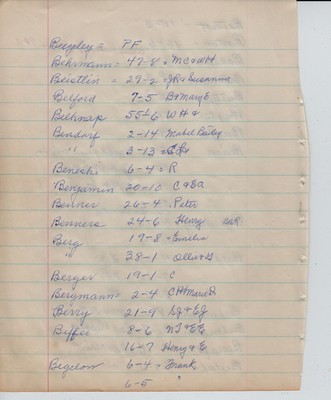 Beegley = PF
Behrmann = 49-8 = MC & WH
Beistlin = 29-2 = JR & Susanna
Belford 7-5 B & Mary E
Belknap 55-6 W H &
Bendorf 2-14 Mabel Bailey
" 3-13 =
Beneshi 6-4 = R
Benjamin 20-10 C & EA
Benner 26-4 Peter
Benners 24-6 Henry
Berg 19-8 = Emilia
" 38-1 Ollie & G
Berger 19-1 C
Bergmann = 2-4 CH & Marie D
Berry 21-9 LJ & EJ
Biffer 8-6 NJ & EE
16-7 Henry & E
Bigelow 6-4 = Frank
6-5 "